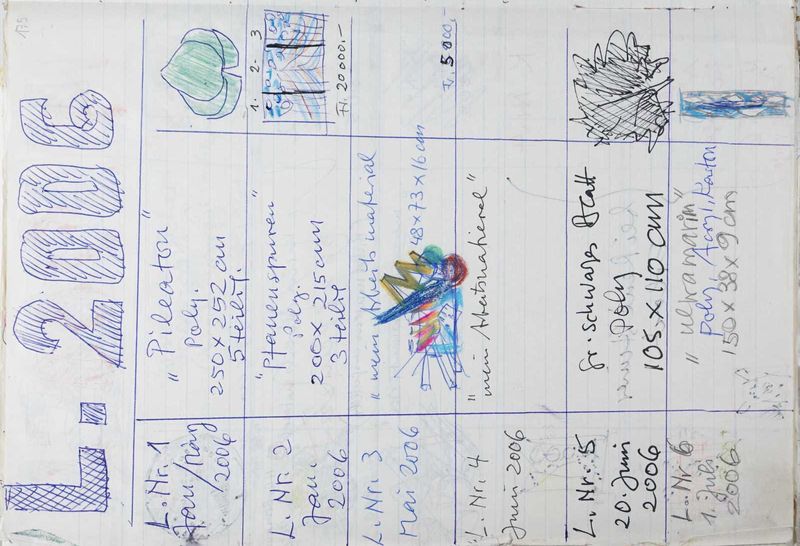 175
L. 2006
L. Nr. 1
Jan/März
2006
"Pileaton"
Poly.
250 x 252 cm
5 teilig.
L. Nr. 2
Jan.
2006
"Pfauenspuren"
Poly.
200 x 215 cm
3 teilig
1. 2. 3
Fr. 20 000.-
L. Nr. 3
Mai 2006
"mein Arbeitsmaterial
48 x 73 x 16 cm
Fr. 5000.-
L. Nr. 4
Juni 2006
"mein Arbeitsmaterial"
L. Nr. 5
20. Juni
2006
gr. schwarzes Blatt
Poly
105 x 110 cm
L. Nr. 6
1. Juli
2006
"ultramarin"
Poly, Acryl, Karton
150 x 38 x 9 cm